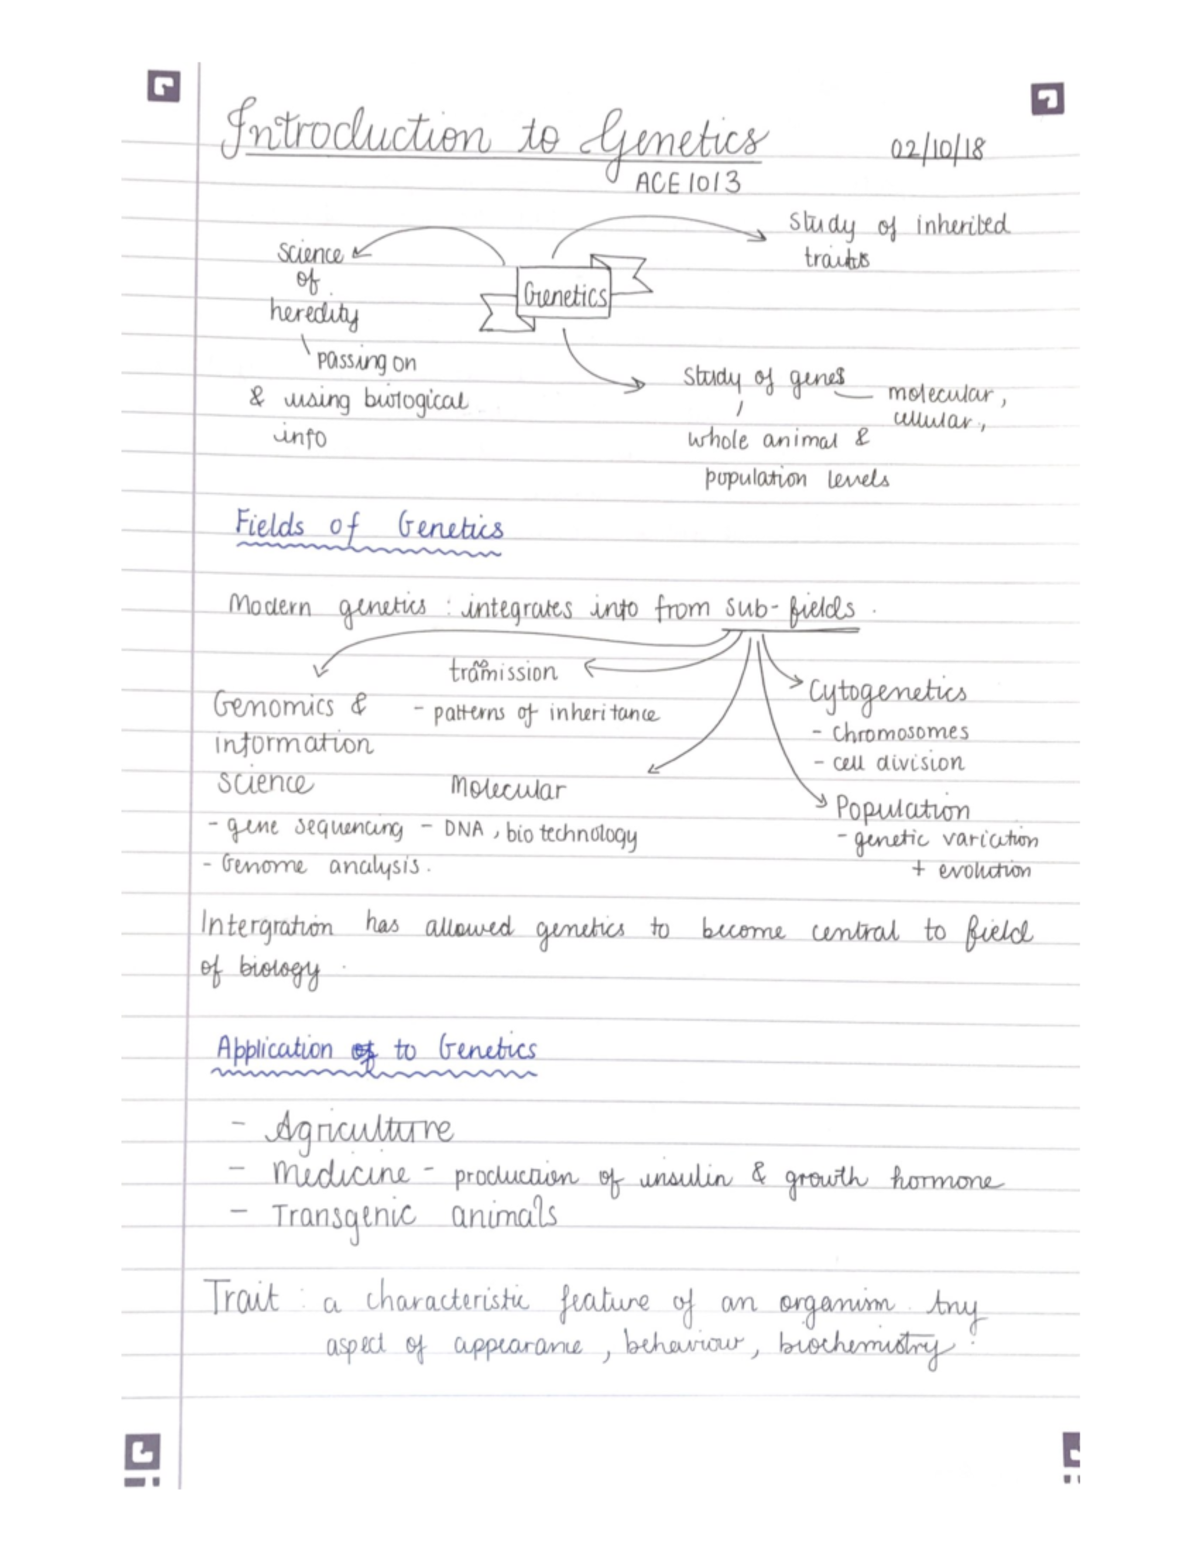 Introduction to Genetics
02/10/18
ACE1013
science
of
heredity
passing on
& using biological
info
Genetics
Study of inherited
traits
study of genes
molecular,
cellular,
whole animal &
population levels
Fields of Genetics
Modern genetics : integrates info from sub-fields.
Genomics &
information
science
- gene sequencing
- Genome analysis.
- patterns of inheritance
Molecular
- DNA, bio technology
Cytogenetics
- chromosomes
- cell division
Population
- genetic variation
+ evolution
Intergration has allowed genetics to become central to field
of biology.
Application to Genetics
- Agriculture
- Medicine - production of insulin & growth hormone
- Transgenic animals
Trait : a characteristic feature of an organism. Any
aspect of appearance, behaviour, biochemistry.